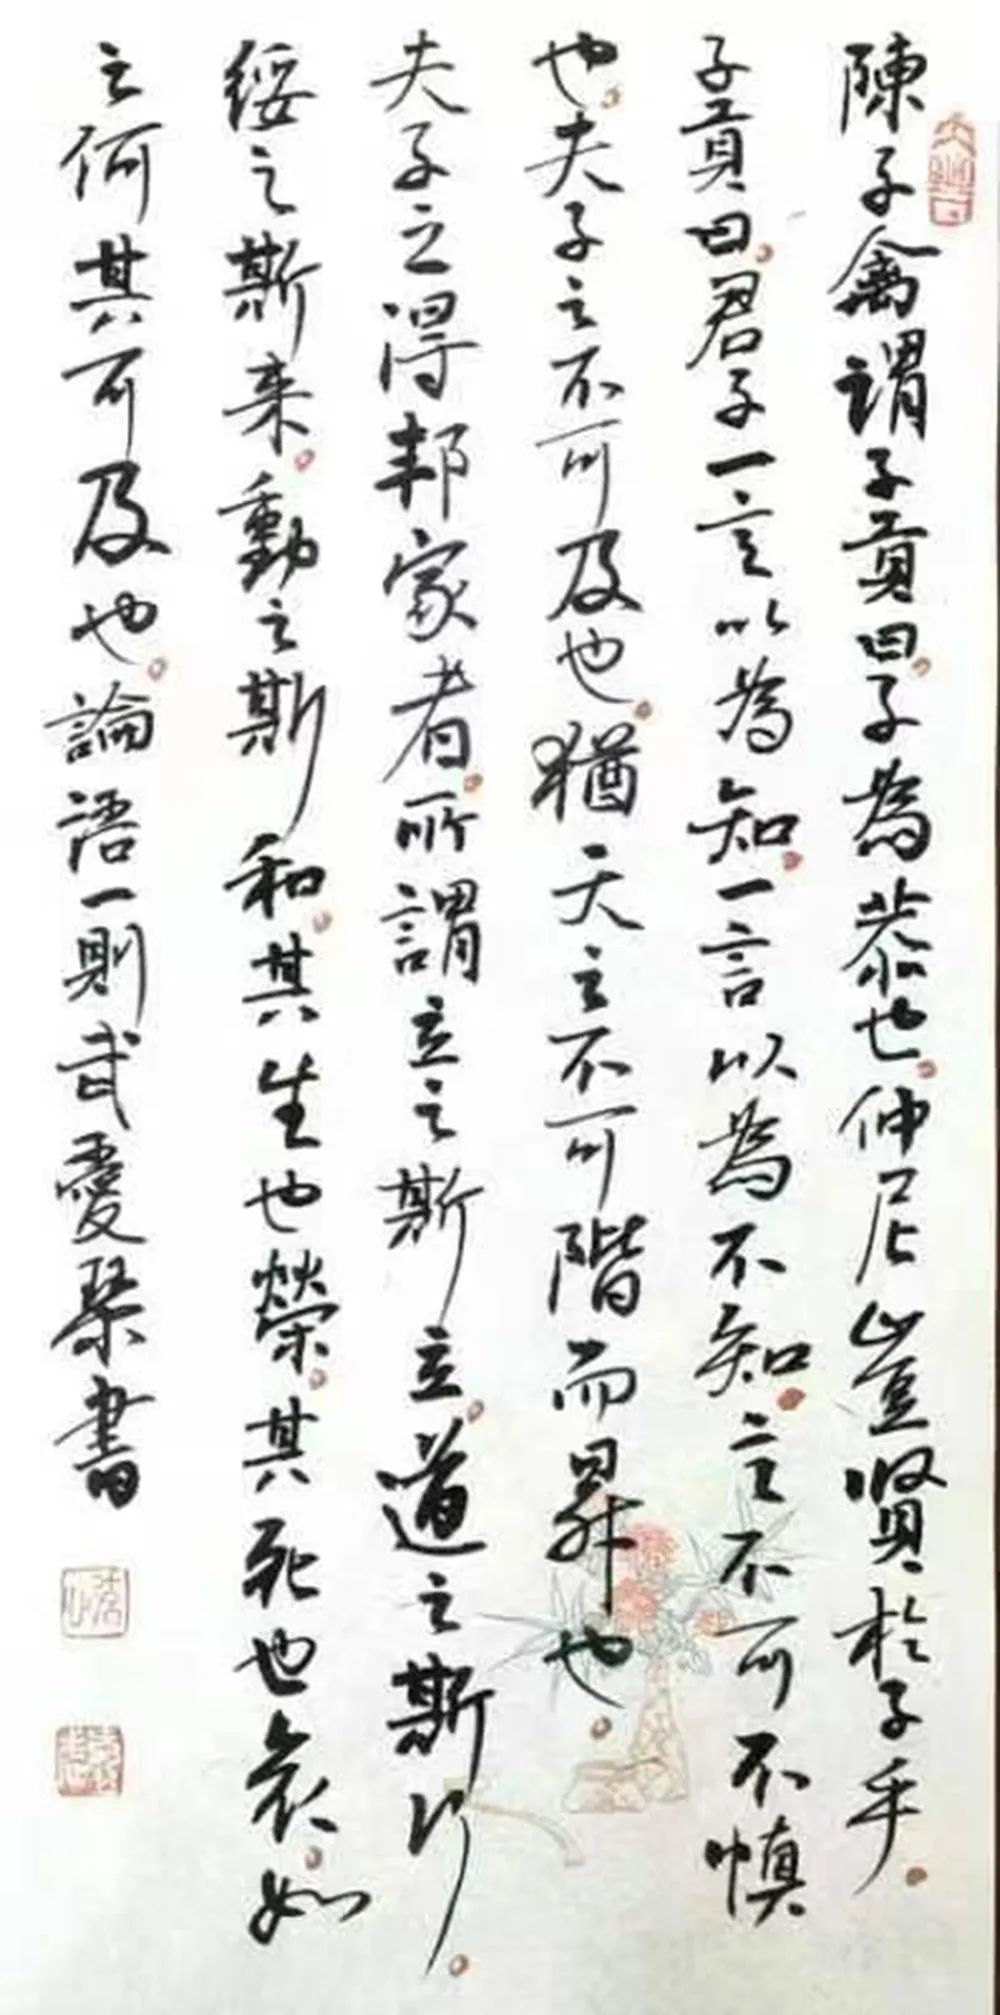 陳子禽謂子貢曰子為恭也仲尼豈賢於子乎
子貢曰君子一言以為知一言以為不知言不可不慎
也夫子之不可及也猶天之不可階而昇也
夫子之得邦家者所謂立之斯立道之斯行
綏之斯来動之斯和其生也榮其死也哀如
之何其可及也論語一則武愛琴書